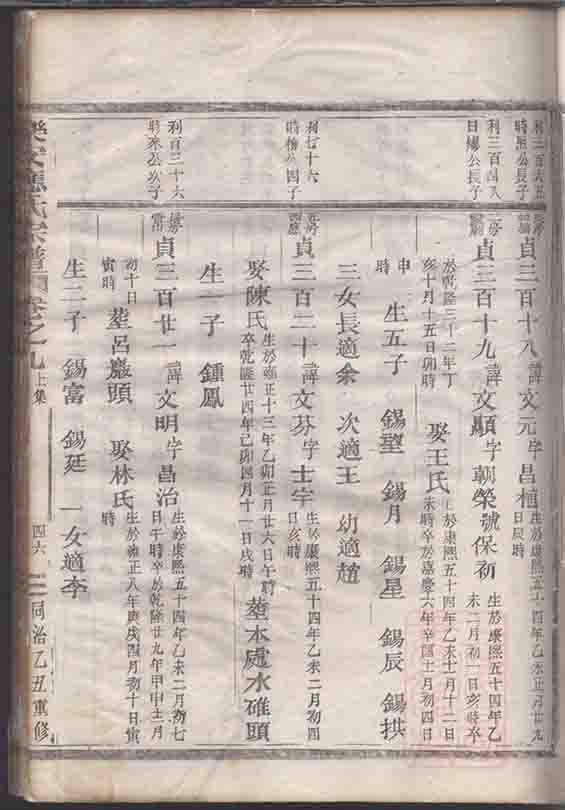 利三百六五
時熙公長子
利三百四八
日繆公長子
利七十六
公四子
利百三十六
公次子
貞三百十八 諱文元字昌
生於康熙五十四年乙未正月廿九
日辰時
貞三百十九 諱文顯字朝榮號保初
生於康熙五十四年乙
未二月初一日亥時卒
於乾隆三十二年丁
亥十月十五日卯時
娶王氏
生於康熙五十四年乙未十月十二日
未時卒於嘉慶六年辛酉十月初四日
申
時
生五子 錫望 錫月 錫星 錫辰 錫拱
三女長適余 次適王 幼適趙
貞三百二十 諱文芬字士宇
生於康熙五十四年乙未二月初四
日亥時
娶陳氏
生於雍正十三年乙卯正月廿六日午時
卒乾隆廿四年己卯四月十一日戌時
塟本處水碓頭
生一子 鍾鳳
貞三百廿一 諱文明字昌治
生於康熙五十四年乙未二月初七
日午時卒於乾隆廿九年甲申十二月
初十日
寅時
塟呂巖頭 娶林氏
生於雍正八年庚戌四月初十日寅
時
生二子 錫富 錫延 一女適李
樂安 氏宗譜 卷之九 上集 四六 同治乙丑重修